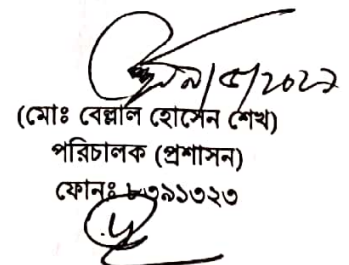 (মোঃ বেল্লাল হোসেন শেখ)
পরিচালক (প্রশাসন)
ফোনঃ ৮৩৯১৩২৩